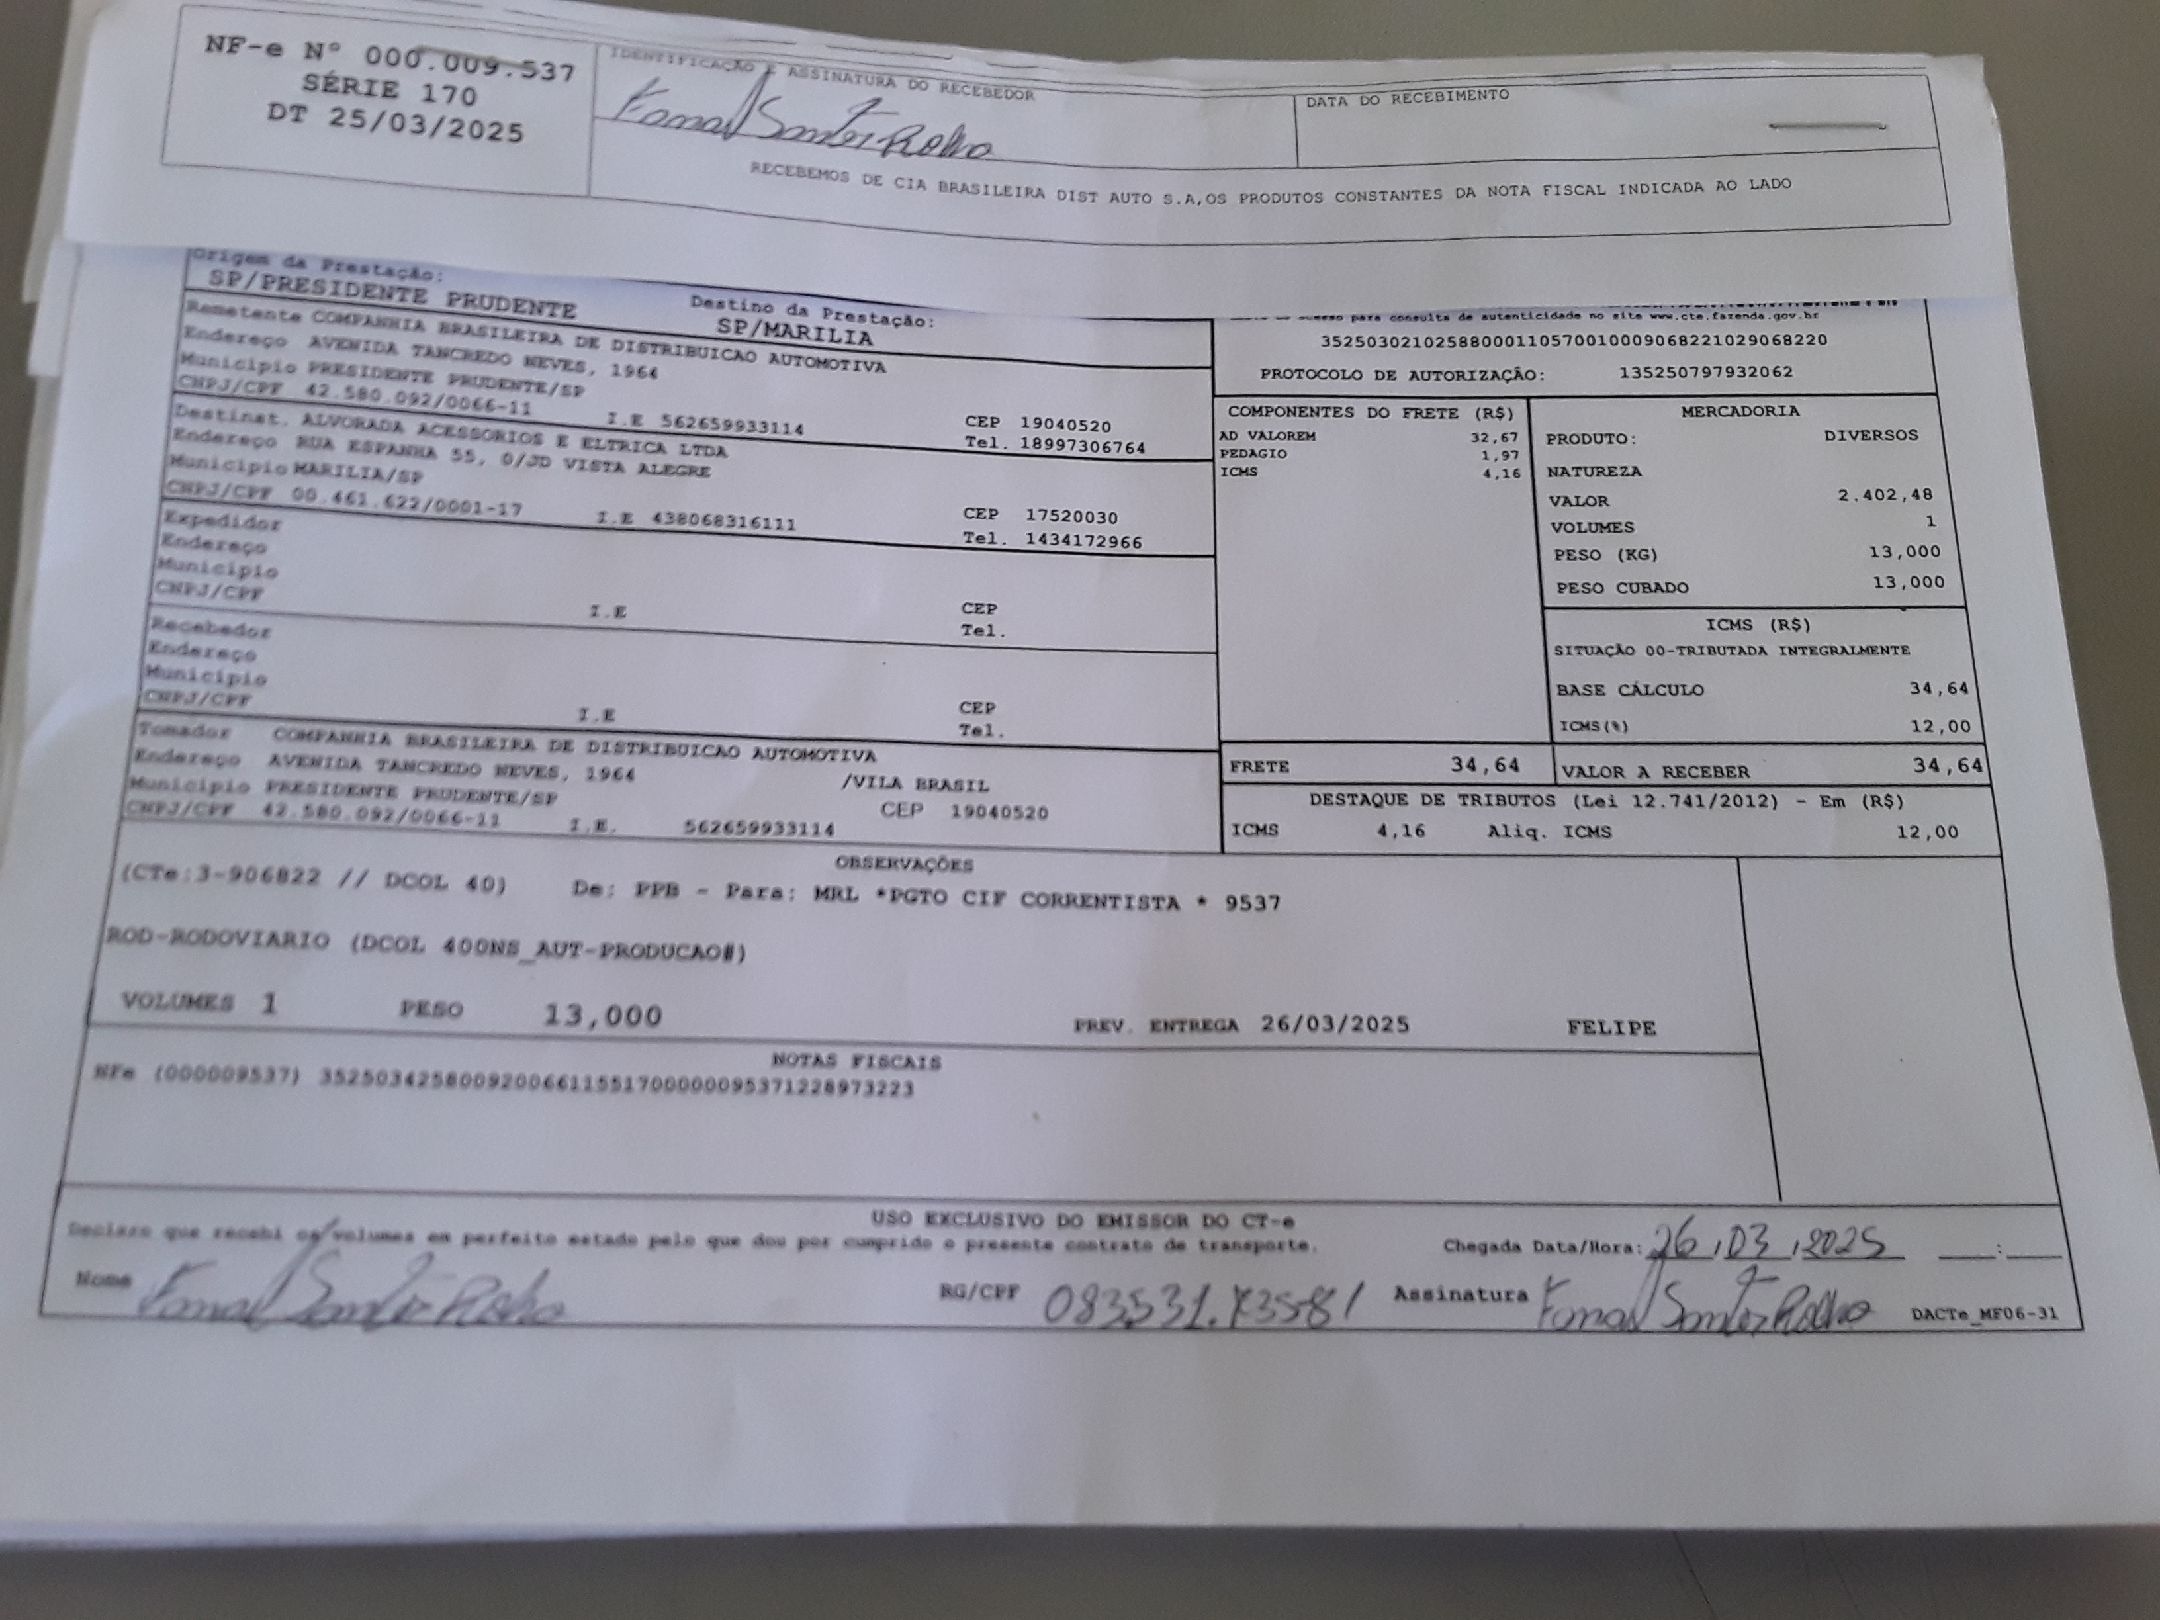 NF-e Nº 000.009.537
SÉRIE 170
DT 25/03/2025
IDENTIFICAÇÃO E ASSINATURA DO RECEBEDOR
DATA DO RECEBIMENTO
RECEBEMOS DE CIA BRASILEIRA DIST AUTO S.A,OS PRODUTOS CONSTANTES DA NOTA FISCAL INDICADA AO LADO
Origem da Prestação:
SP/PRESIDENTE PRUDENTE
Destino da Prestação:
SP/MARILIA
Remetente COMPANHIA BRASILEIRA DE DISTRIBUICAO AUTOMOTIVA
Endereço AVENIDA TANCREDO NEVES, 1964
Município PRESIDENTE PRUDENTE/SP
CEP 19040520
CNPJ/CPF 42.580.092/0066-11 I.E 562659933114
Tel. 18997306764
Destinat. ALVORADA ACESSORIOS E ELTRICA LTDA
Endereço RUA ESPANHA 55, 0/JD VISTA ALEGRE
Município MARILIA/SP
CEP 17520030
CNPJ/CPF 00.461.622/0001-17 I.E 438068316111
Tel. 1434172966
Expedidor
Endereço
Município
CEP
CNPJ/CPF I.E
Tel.
Recebedor
Endereço
Município
CEP
CNPJ/CPF I.E
Tel.
Tomador COMPANHIA BRASILEIRA DE DISTRIBUICAO AUTOMOTIVA
Endereço AVENIDA TANCREDO NEVES, 1964 /VILA BRASIL
Município PRESIDENTE PRUDENTE/SP CEP 19040520
CNPJ/CPF 42.580.092/0066-11 I.E. 562659933114
para consulta de autenticidade no site www.cte.fazenda.gov.br
35250302102588000110570010009068221029068220
PROTOCOLO DE AUTORIZAÇÃO: 135250797932062
COMPONENTES DO FRETE (R$)
AD VALOREM 32,67
PEDAGIO 1,97
ICMS 4,16
MERCADORIA
PRODUTO: DIVERSOS
NATUREZA
VALOR 2.402,48
VOLUMES 1
PESO (KG) 13,000
PESO CUBADO 13,000
ICMS (R$)
SITUAÇÃO 00-TRIBUTADA INTEGRALMENTE
BASE CÁLCULO 34,64
ICMS(%) 12,00
FRETE 34,64
VALOR A RECEBER 34,64
DESTAQUE DE TRIBUTOS (Lei 12.741/2012) - Em (R$)
ICMS 4,16 Aliq. ICMS 12,00
OBSERVAÇÕES
(CTe:3-906822 // DCOL 40) De: PPB - Para: MRL *PGTO CIF CORRENTISTA * 9537
ROD-RODOVIARIO (DCOL 400NS_AUT-PRODUCAO#)
VOLUMES 1 PESO 13,000 PREV. ENTREGA 26/03/2025 FELIPE
NOTAS FISCAIS
NFe (000009537) 35250342580092006611551700000095371228973223
USO EXCLUSIVO DO EMISSOR DO CT-e
Declaro que recebi os volumes em perfeito estado pelo que dou por cumprido o presente contrato de transporte.
Chegada Data/Hora: 26/03/2025 __:__
Nome
RG/CPF
Assinatura
DACTe_MF06-31